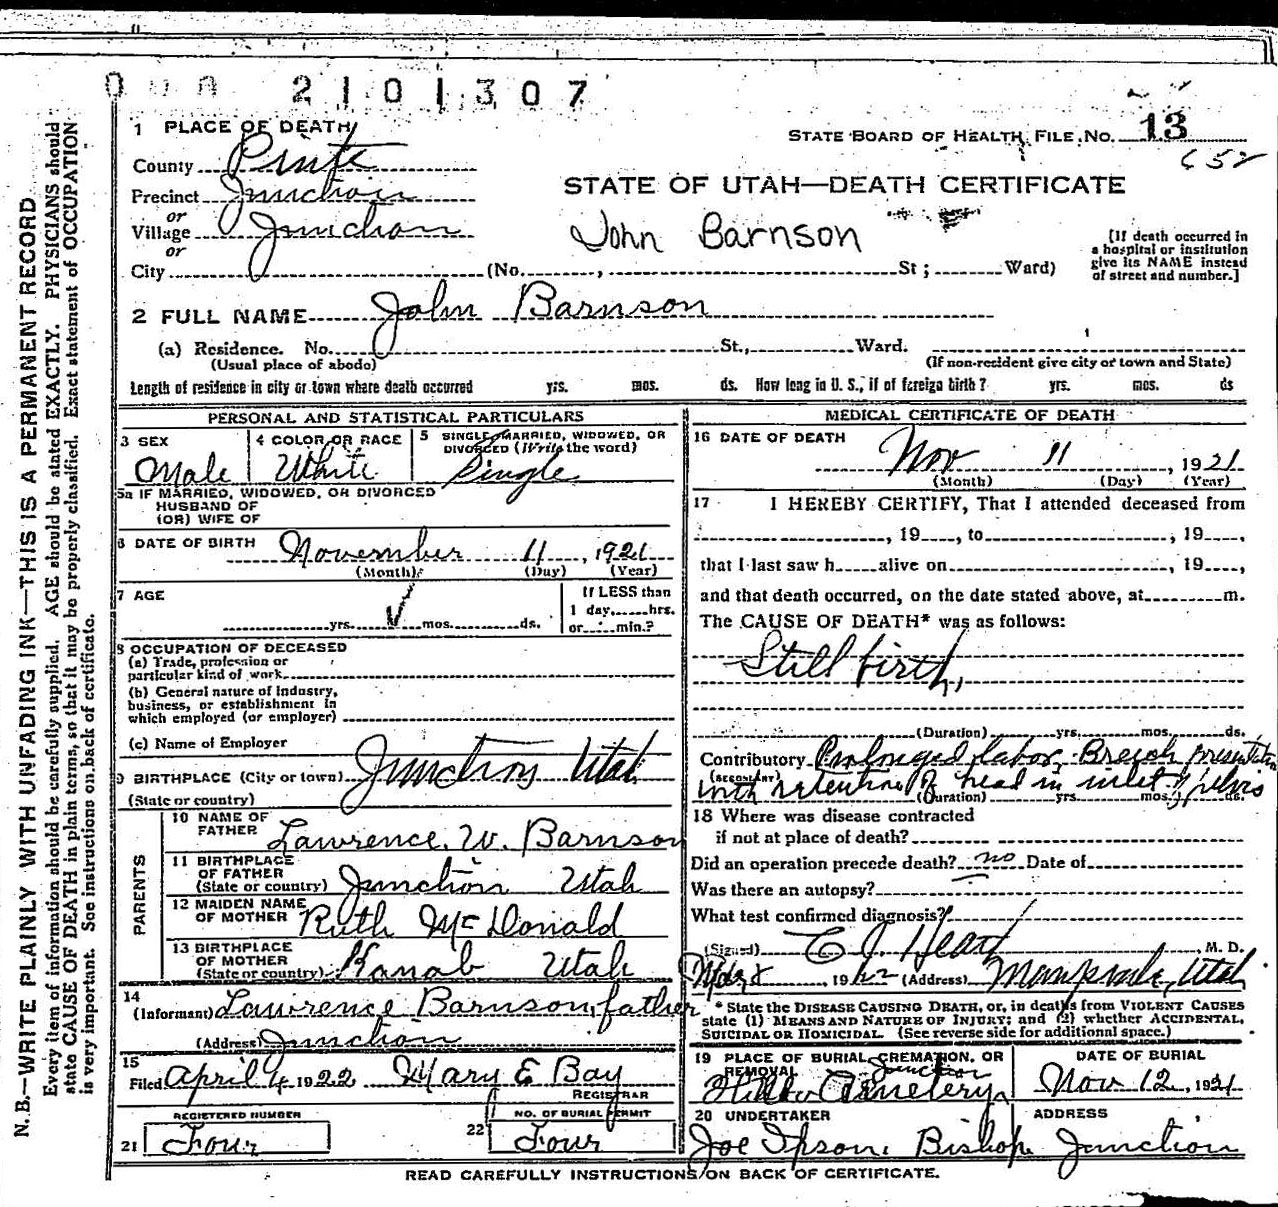 2101307
1 PLACE OF DEATH
STATE BOARD OF HEALTH, FILE NO. 13
652
County Piute
Precinct Junction
STATE OF UTAH—DEATH CERTIFICATE
or
Village Junction
John Barnson
or
City (No. , St ; Ward)
[If death occurred in
a hospital or institution
give its NAME instead
of street and number.]
2 FULL NAME John Barnson
(a) Residence. No. St., Ward.
(Usual place of abode) (If non-resident give city or town and State)
Length of residence in city or town where death occurred yrs. mos. ds. How long in U. S., if of foreign birth? yrs. mos. ds
PERSONAL AND STATISTICAL PARTICULARS
3 SEX Male
4 COLOR OR RACE White
5 SINGLE, MARRIED, WIDOWED, OR
DIVORCED (Write the word)
Single
5a IF MARRIED, WIDOWED, OR DIVORCED
HUSBAND OF
(OR) WIFE OF
6 DATE OF BIRTH November 11, 1921
(Month) (Day) (Year)
7 AGE
yrs. mos. ds.
If LESS than
1 day, hrs.
or min.?
8 OCCUPATION OF DECEASED
(a) Trade, profession or
particular kind of work
(b) General nature of industry,
business, or establishment in
which employed (or employer)
(c) Name of Employer
9 BIRTHPLACE (City or town) Junction Utah
(State or country)
PARENTS
10 NAME OF
FATHER Lawrence. W. Barnson
11 BIRTHPLACE
OF FATHER
(State or country) Junction Utah
12 MAIDEN NAME
OF MOTHER Ruth McDonald
13 BIRTHPLACE
OF MOTHER
(State or country) Kanab Utah
14
(Informant) Lawrence Barnson, father
(Address) Junction
15
Filed April 4 1922 Mary E Bay
REGISTRAR
REGISTERED NUMBER
21 Four
NO. OF BURIAL PERMIT
22 Four
MEDICAL CERTIFICATE OF DEATH
16 DATE OF DEATH
Nov 11, 1921
(Month) (Day) (Year)
17 I HEREBY CERTIFY, That I attended deceased from
, 19 , to , 19 ,
that I last saw h alive on , 19 ,
and that death occurred, on the date stated above, at m.
The CAUSE OF DEATH* was as follows:
Still birth,
(Duration) yrs. mos. ds.
Contributory Prolonged labor, Breech presentation
(SECONDARY)
with retention of head in inlet of pelvis
(Duration) yrs. mos. ds.
18 Where was disease contracted
if not at place of death?
Did an operation precede death? no Date of
Was there an autopsy?
What test confirmed diagnosis?
(Signed) , M. D.
1922 (Address) Utah
* State the DISEASE CAUSING DEATH, or, in deaths from VIOLENT CAUSES
state (1) MEANS AND NATURE OF INJURY; and (2) whether ACCIDENTAL,
SUICIDAL OR HOMICIDAL. (See reverse side for additional space.)
19 PLACE OF BURIAL, CREMATION, OR
REMOVAL
Junction
Cemetery
DATE OF BURIAL
Nov 12, 1921
20 UNDERTAKER
Joe Ipson, Bishop
ADDRESS
Junction
READ CAREFULLY INSTRUCTIONS ON BACK OF CERTIFICATE.
N. B.—WRITE PLAINLY WITH UNFADING INK—THIS IS A PERMANENT RECORD
Every item of information should be carefully supplied. AGE should be stated EXACTLY. PHYSICIANS should
state CAUSE OF DEATH in plain terms, so that it may be properly classified. Exact statement of OCCUPATION
is very important. See instructions on back of certificate.